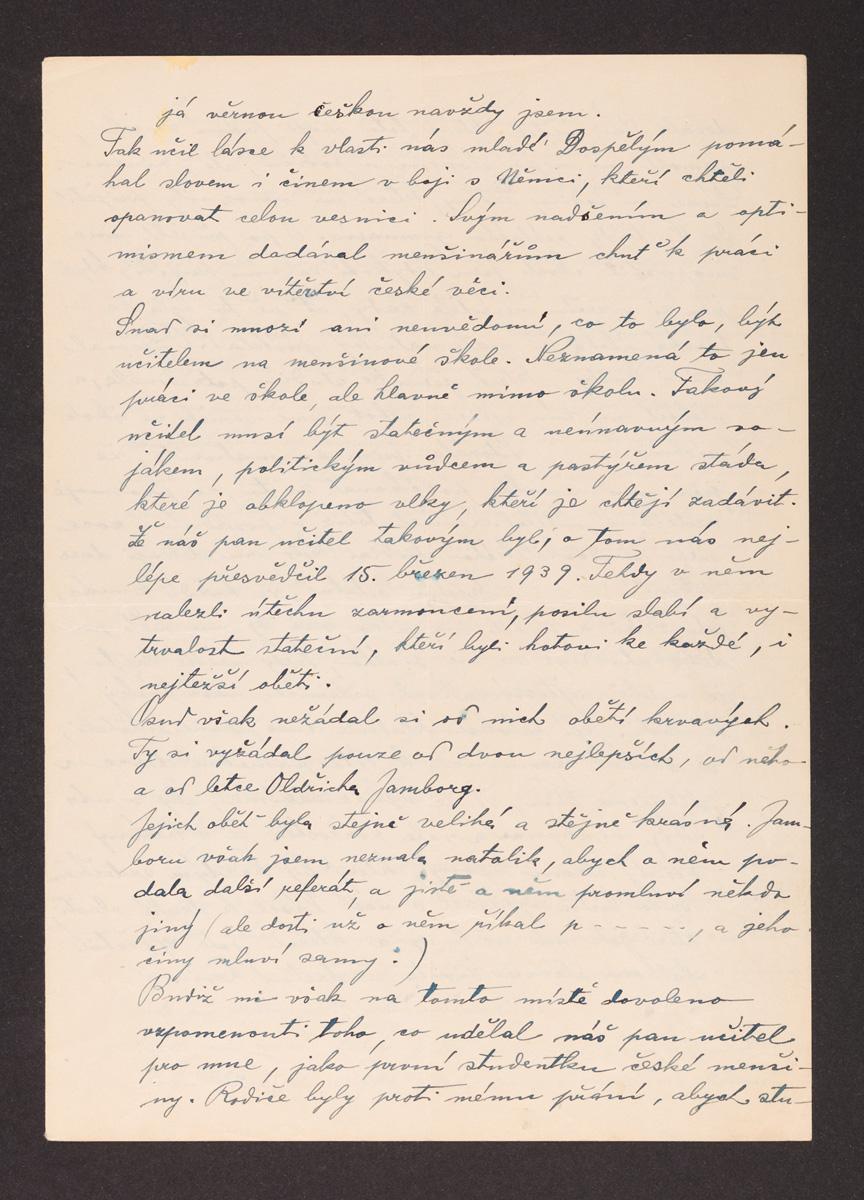 já věrnou češkou navždy jsem.
Tak učil lásce k vlasti nás mladé. Dospělým pomá-
hal slovem i činem v boji s Němci, kteří chtěli
opanovat celou vesnici. Svým nadšením a opti-
mismem dodával menšinářům chuť k práci
a víru ve vítězství české věci.
Snad si mnozí ani neuvědomí, co to bylo, být
učitelem na menšinové škole. Neznamená to jen
práci ve škole, ale hlavně mimo školu. Takový
učitel musí být statečným a neúnavným vo-
jákem, politickým vůdcem a pastýřem stáda,
které je obklopeno vlky, kteří je chtějí zadávit.
Že náš pan učitel takovým byl, o tom nás nej-
lépe přesvědčil 15. březen 1939. Tehdy v něm
nalezli útěchu zarmoucení, posilu slabí a vy-
trvalost stateční, kteří byli hotovi ke každé, i
nejtežší oběti.
Osud však nežádal si od nich obětí krvavých.
Ty si vyžádal pouze od dvou nejlepších, od něho
a od letce Oldřicha Jambory.
Jejich oběť byla stejně veliká a stějně krásná. Jam-
boru však jsem neznala natolik, abych o něm po-
dala další referát, a jistě o něm promluví někdo
jiný (ale dosti už o něm říkal p - - - - - -, a jeho
činy mluví samy.)
Budiž mi však na tomto místě dovoleno
vzpomenouti toho, co udělal náš pan učitel
pro mne, jako první studentku české menši-
ny. Rodiče byly proti mému přání, abych stu-